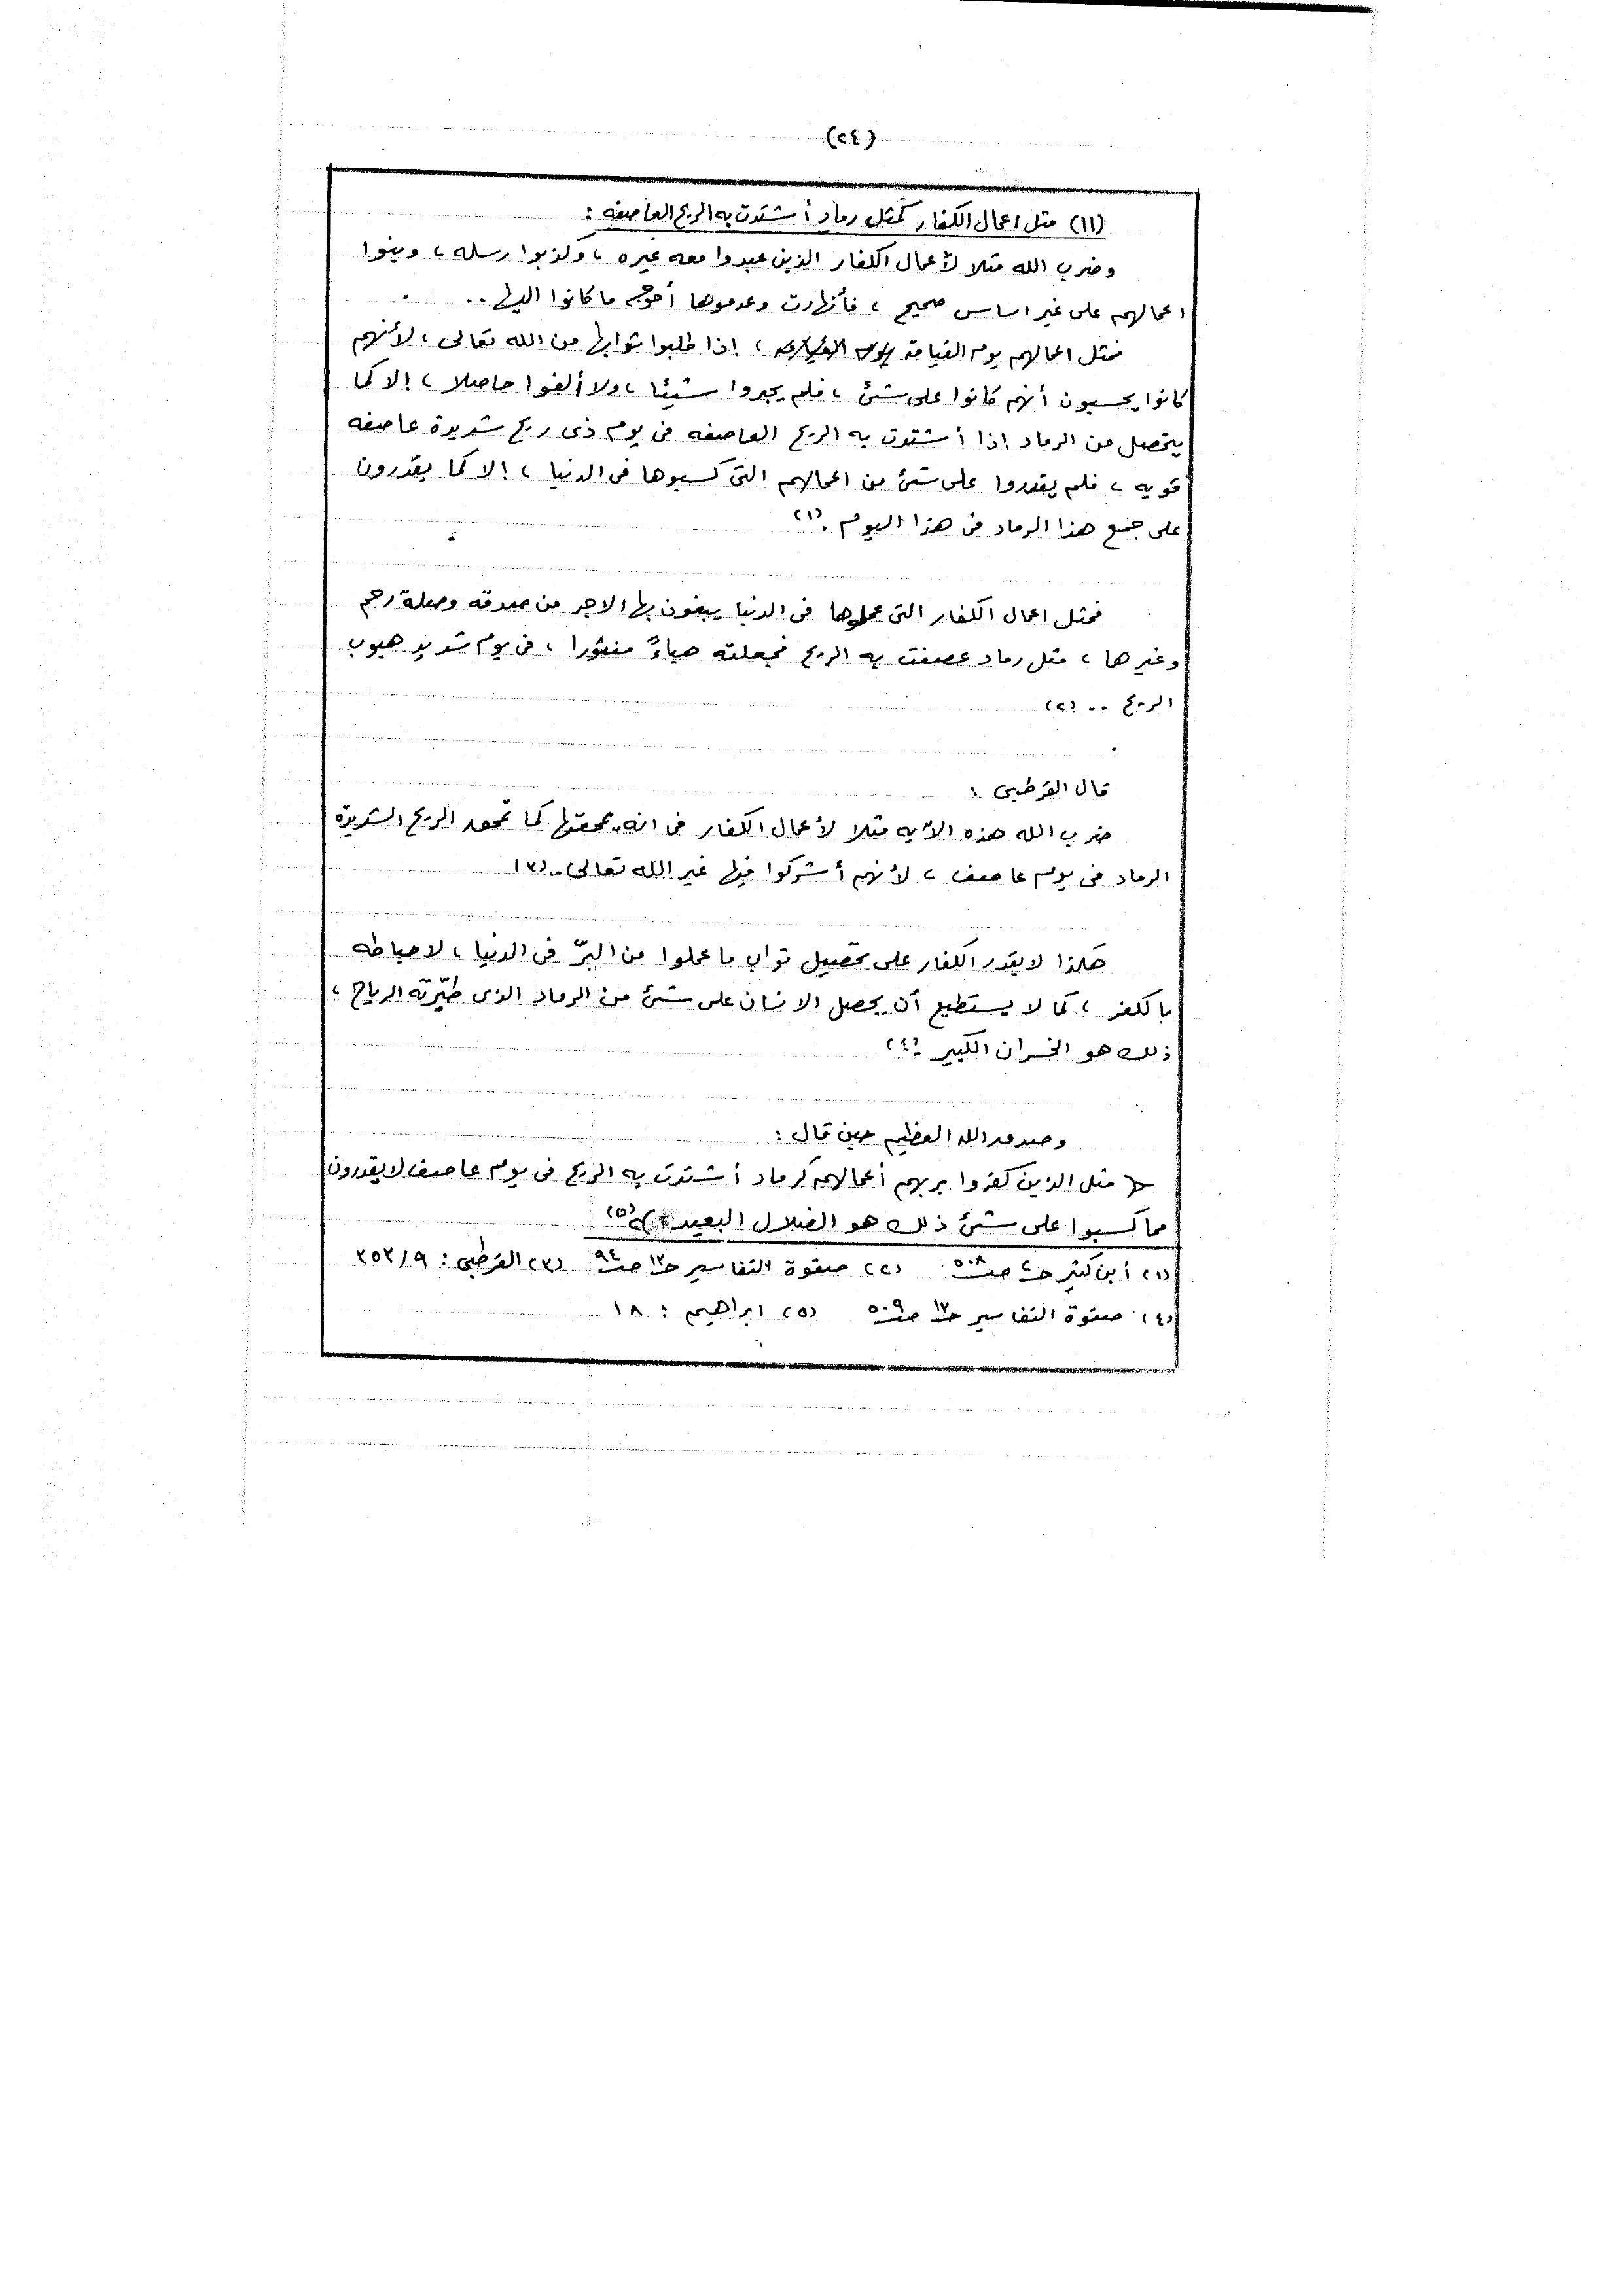 (٢٤)
(١١) مثل اعمال الكفار كمثل رماد أشتدت به الريح العاصفه :
وضرب الله مثلا لأعمال الكفار الذين عبدوا معه غيره ، وكذبوا رسله ، وبنوا
اعمالهم على غير اساس صحيح ، فأنهارت وعدموها أحوج ما كانوا اليها ..
فمثل اعمالهم يوم القيامة ، إذا طلبوا ثوابها من الله تعالى ، لأنهم
كانوا يحسبون أنهم كانوا على شئ ، فلم يجدوا شيئا ، ولا ألفوا حاصلا ، إلا كما
يتحصل من الرماد إذا أشتدت به الريح العاصفه فى يوم ذى ريح شديدة عاصفه
قويه ، فلم يقدروا على شئ من اعمالهم التى كسبوها فى الدنيا ، إلا كما يقدرون
على جمع هذا الرماد فى هذا اليوم .(١)
فمثل اعمال الكفار التى عملوها فى الدنيا يبغون بها الاجر من صدقه وصلة رحم
وغيرها ، مثل رماد عصفت به الريح فجعلته هباءً منثورا ، فى يوم شديد هبوب
الريح .. (٢)
قال القرطبى :
ضرب الله هذه الآيه مثلا لأعمال الكفار فى انه يمحقها كما تمحق الريح الشديدة
الرماد فى يوم عاصف ، لأنهم أشركوا فيها غير الله تعالى ..(٣)
هكذا لا يقدر الكفار على تحصيل ثواب ما عملوا من البرّ فى الدنيا ، لاحباطه
بالكفر ، كما لا يستطيع أن يحصل الانسان على شئ من الرماد الذى طيّرته الرياح ،
ذلك هو الخسران الكبير .(٤)
وصدق الله العظيم حين قال :
﴿ مثل الذين كفروا بربهم أعمالهم كرماد أشتدت به الريح فى يوم عاصف لا يقدرون
مما كسبوا على شئ ذلك هو الضلال البعيد ﴾(٥)
(١) أبن كثير حـ٢ صـ٥٠٨ (٢) صفوة التفاسير حـ١٣ صـ٩٤ (٣) القرطبى : ٣٥٣/٩
(٤) صفوة التفاسير حـ١٣ صـ٥٠٩ (٥) ابراهيم : ١٨